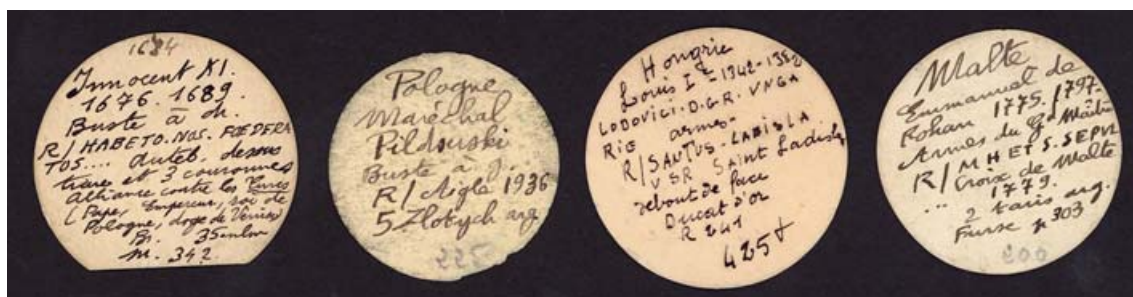 1684
Innocent XI.
1676. 1689.
Buste à dr.
R/ HABETO. NOS. FŒDERA
TOS.... autel. dessus
tiare et 3 couronnes
Alliance contre les Turcs
(Pape, Empereur, roi de
Pologne, doge de Venise)
Br. 35 m/m
M. 342
Pologne
Maréchal
Pildsuski
Buste à
R/ Aigle 1936
5 Zlotych arg.
225
Hongrie
Louis Ier - 1342-1382
LODOVICI. D.G.R. VNGA
RIE armes.
R/ SANTUS. LADISLA
VS R Saint Ladislas
debout de face
Ducat d'or
R 241
425
Malte
Emmanuel de
Rohan 1775. 1797.
Armes du Gd Maître
R/ M HET S. SEPVL
... Croix de Malte
1779.
2 taris arg.
Furse p 303
200